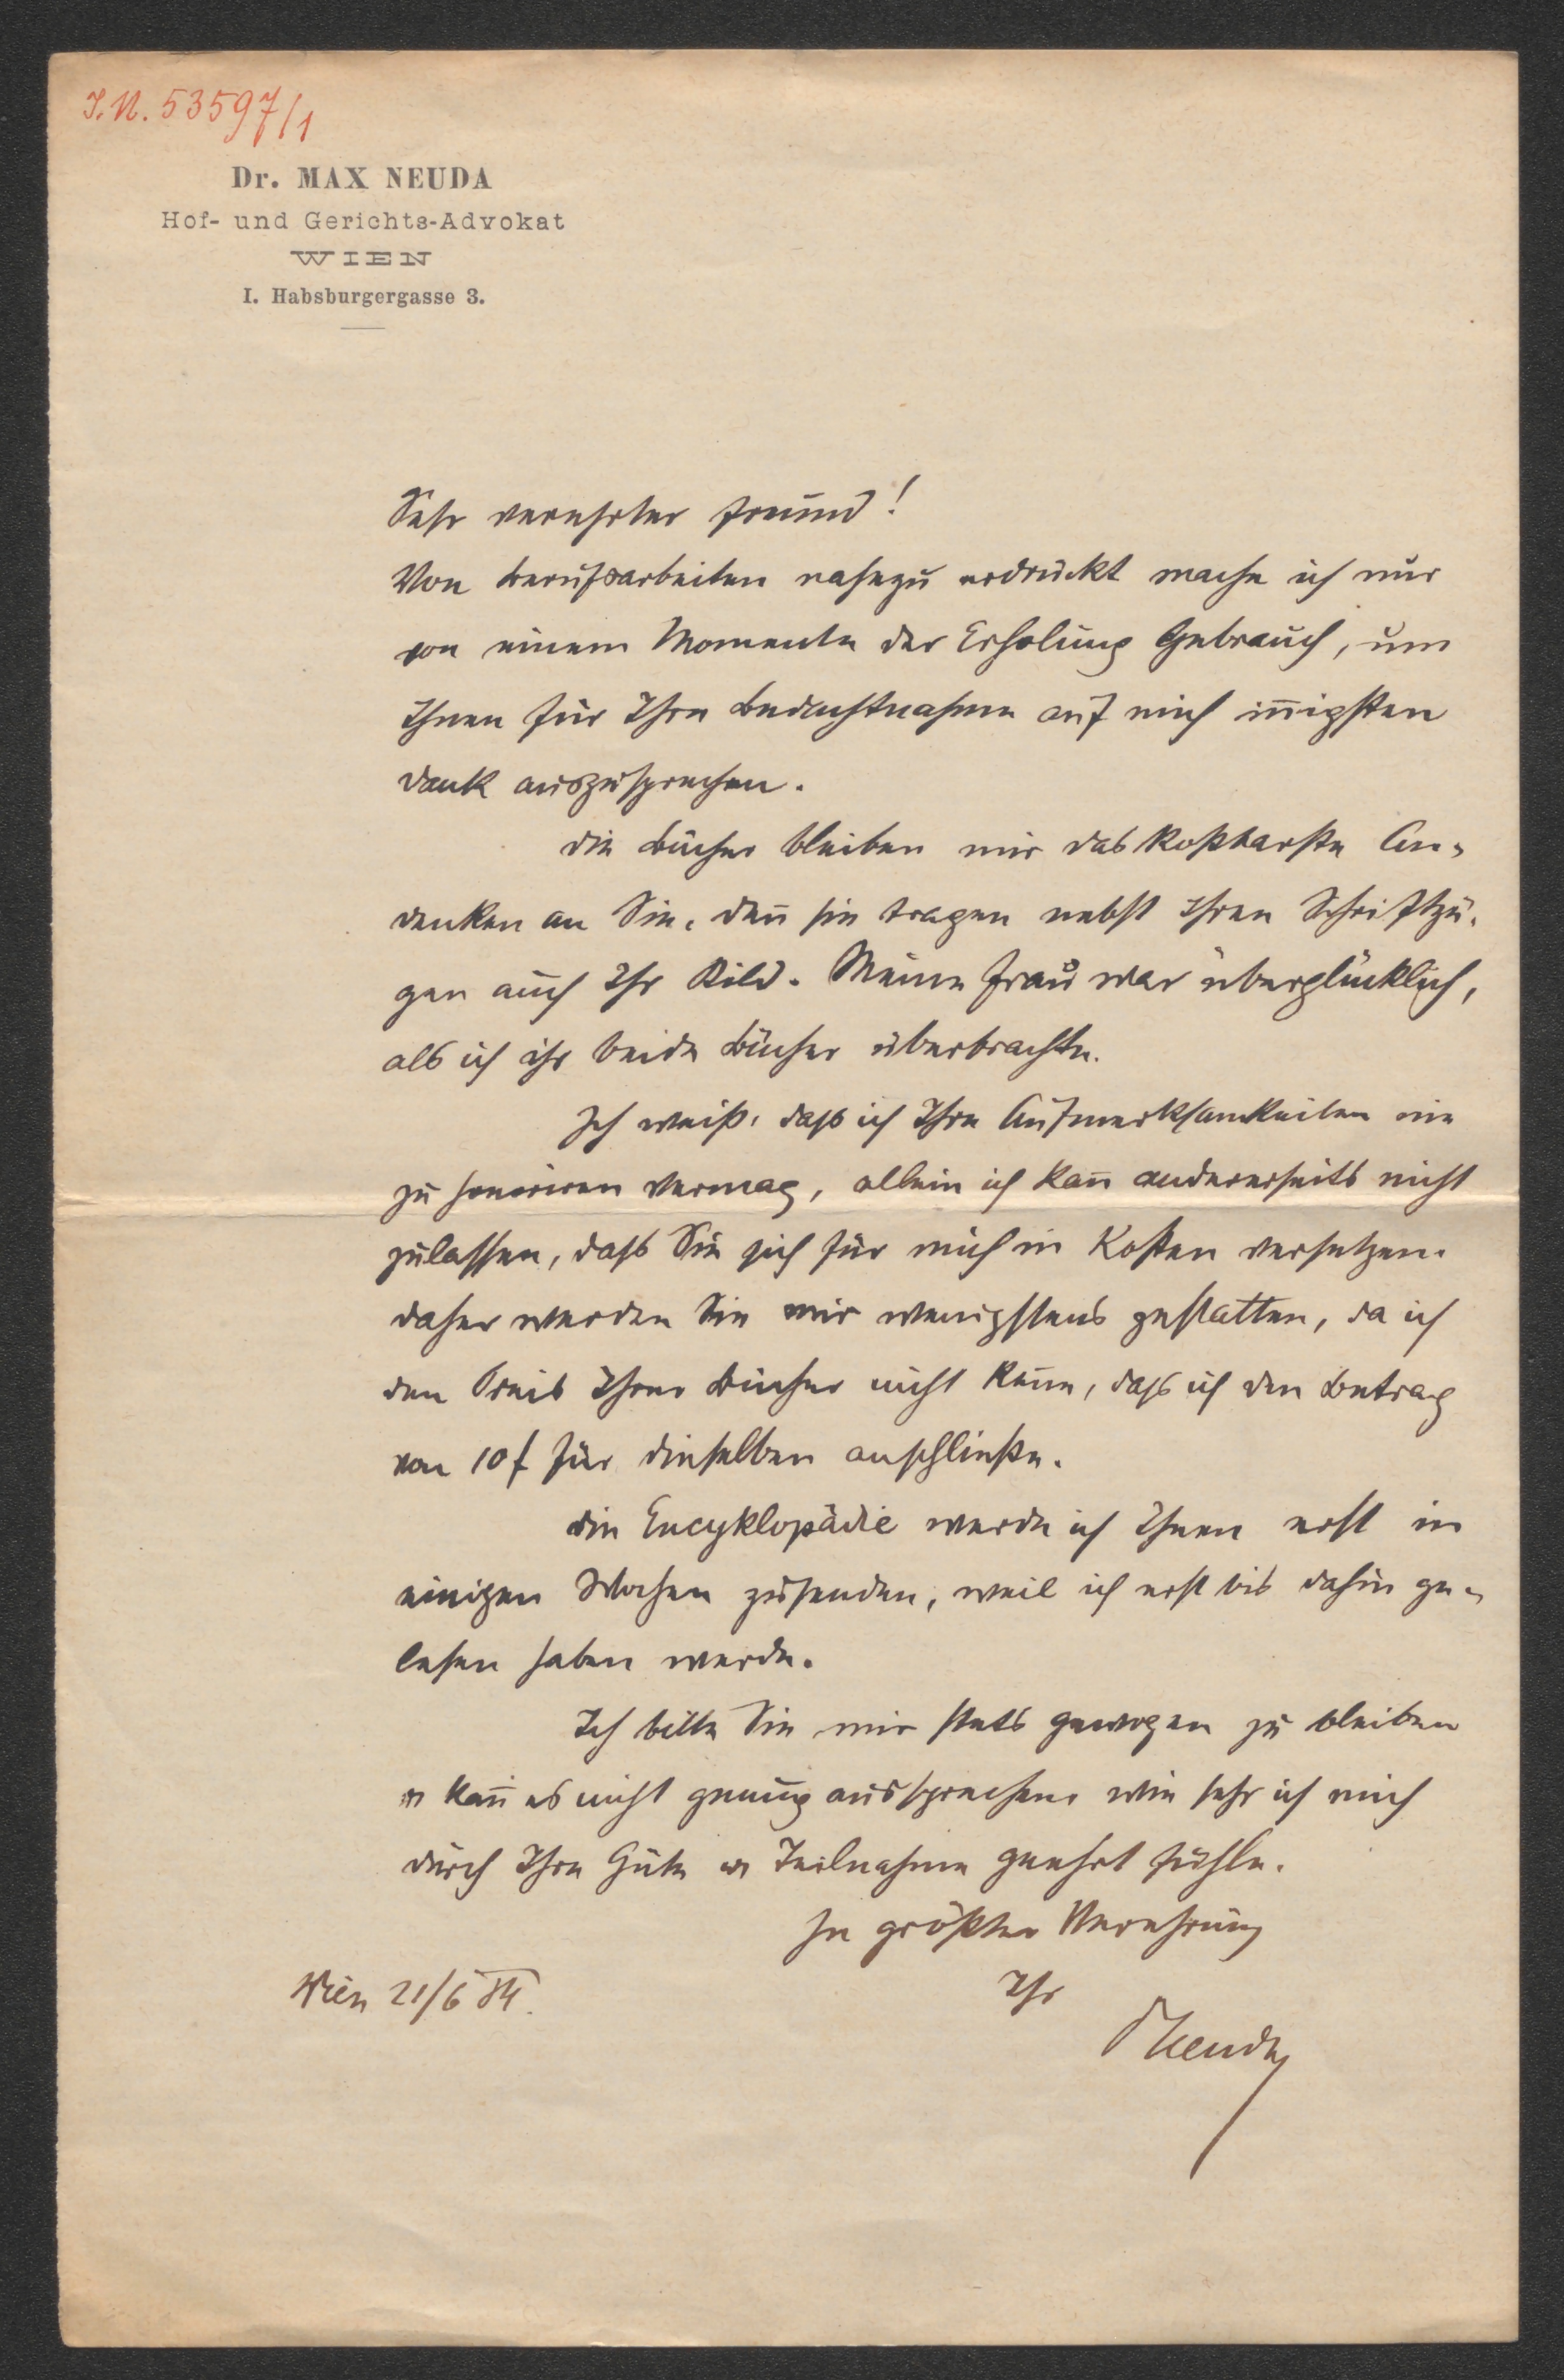 I.N. 53597/1
Dr. MAX NEUDA
Hof- und Gerichts-Advokat
WIEN
I. Habsburgergasse 3.
Sehr verehrter Freund!
Von Berufsarbeiten nahezu erdrückt mache ich nur
von einem Momente der Erholung Gebrauch, um
Ihnen für Ihre Bedachtnahme auf mich iñigsten
Dank auszusprechen.
Die Bücher bleiben mir das kostbarste An-
denken an Sie, deñ sie tragen nebst Ihren Schriftzü-
gen auch Ihr Bild. Meine Frau war überglücklich,
als ich ihr beide Bücher überbrachte.
Ich weiß, daß ich Ihre Aufmerksamkeiten nie
zu honoriren vermag, allein ich kañ andererseits nicht
zulassen, daß Sie sich für mich in Kosten versetzen.
Daher werden Sie mir wenigstens gestatten, da ich
den Preis Ihrer Bücher nicht keñe, daß ich den Betrag
von 10 f für dieselben anschließe.
Die Encyklopädie werde ich Ihnen erst in
einigen Wochen zusenden, weil ich erst bis dahin ge-
lesen haben werde.
Ich bitte Sie mir stets gewogen zu bleiben
u kañ es nicht genug aussprechen wie sehr ich mich
durch Ihre Güte u Teilnahme geehrt fühle.
In größter Verehrung
Ihr
Wien 21/6 84.
Neuda